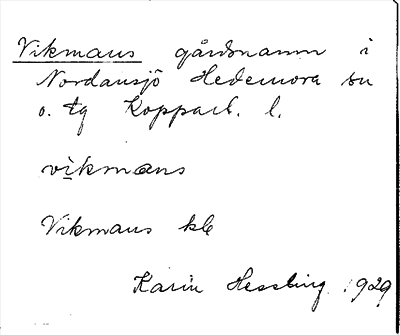 Vikmans gårdsnamn i
Nordansjö Hedemora sn
o. tg Kopparb. l.
vikmans
Vikmans
Karin Hessling 1929